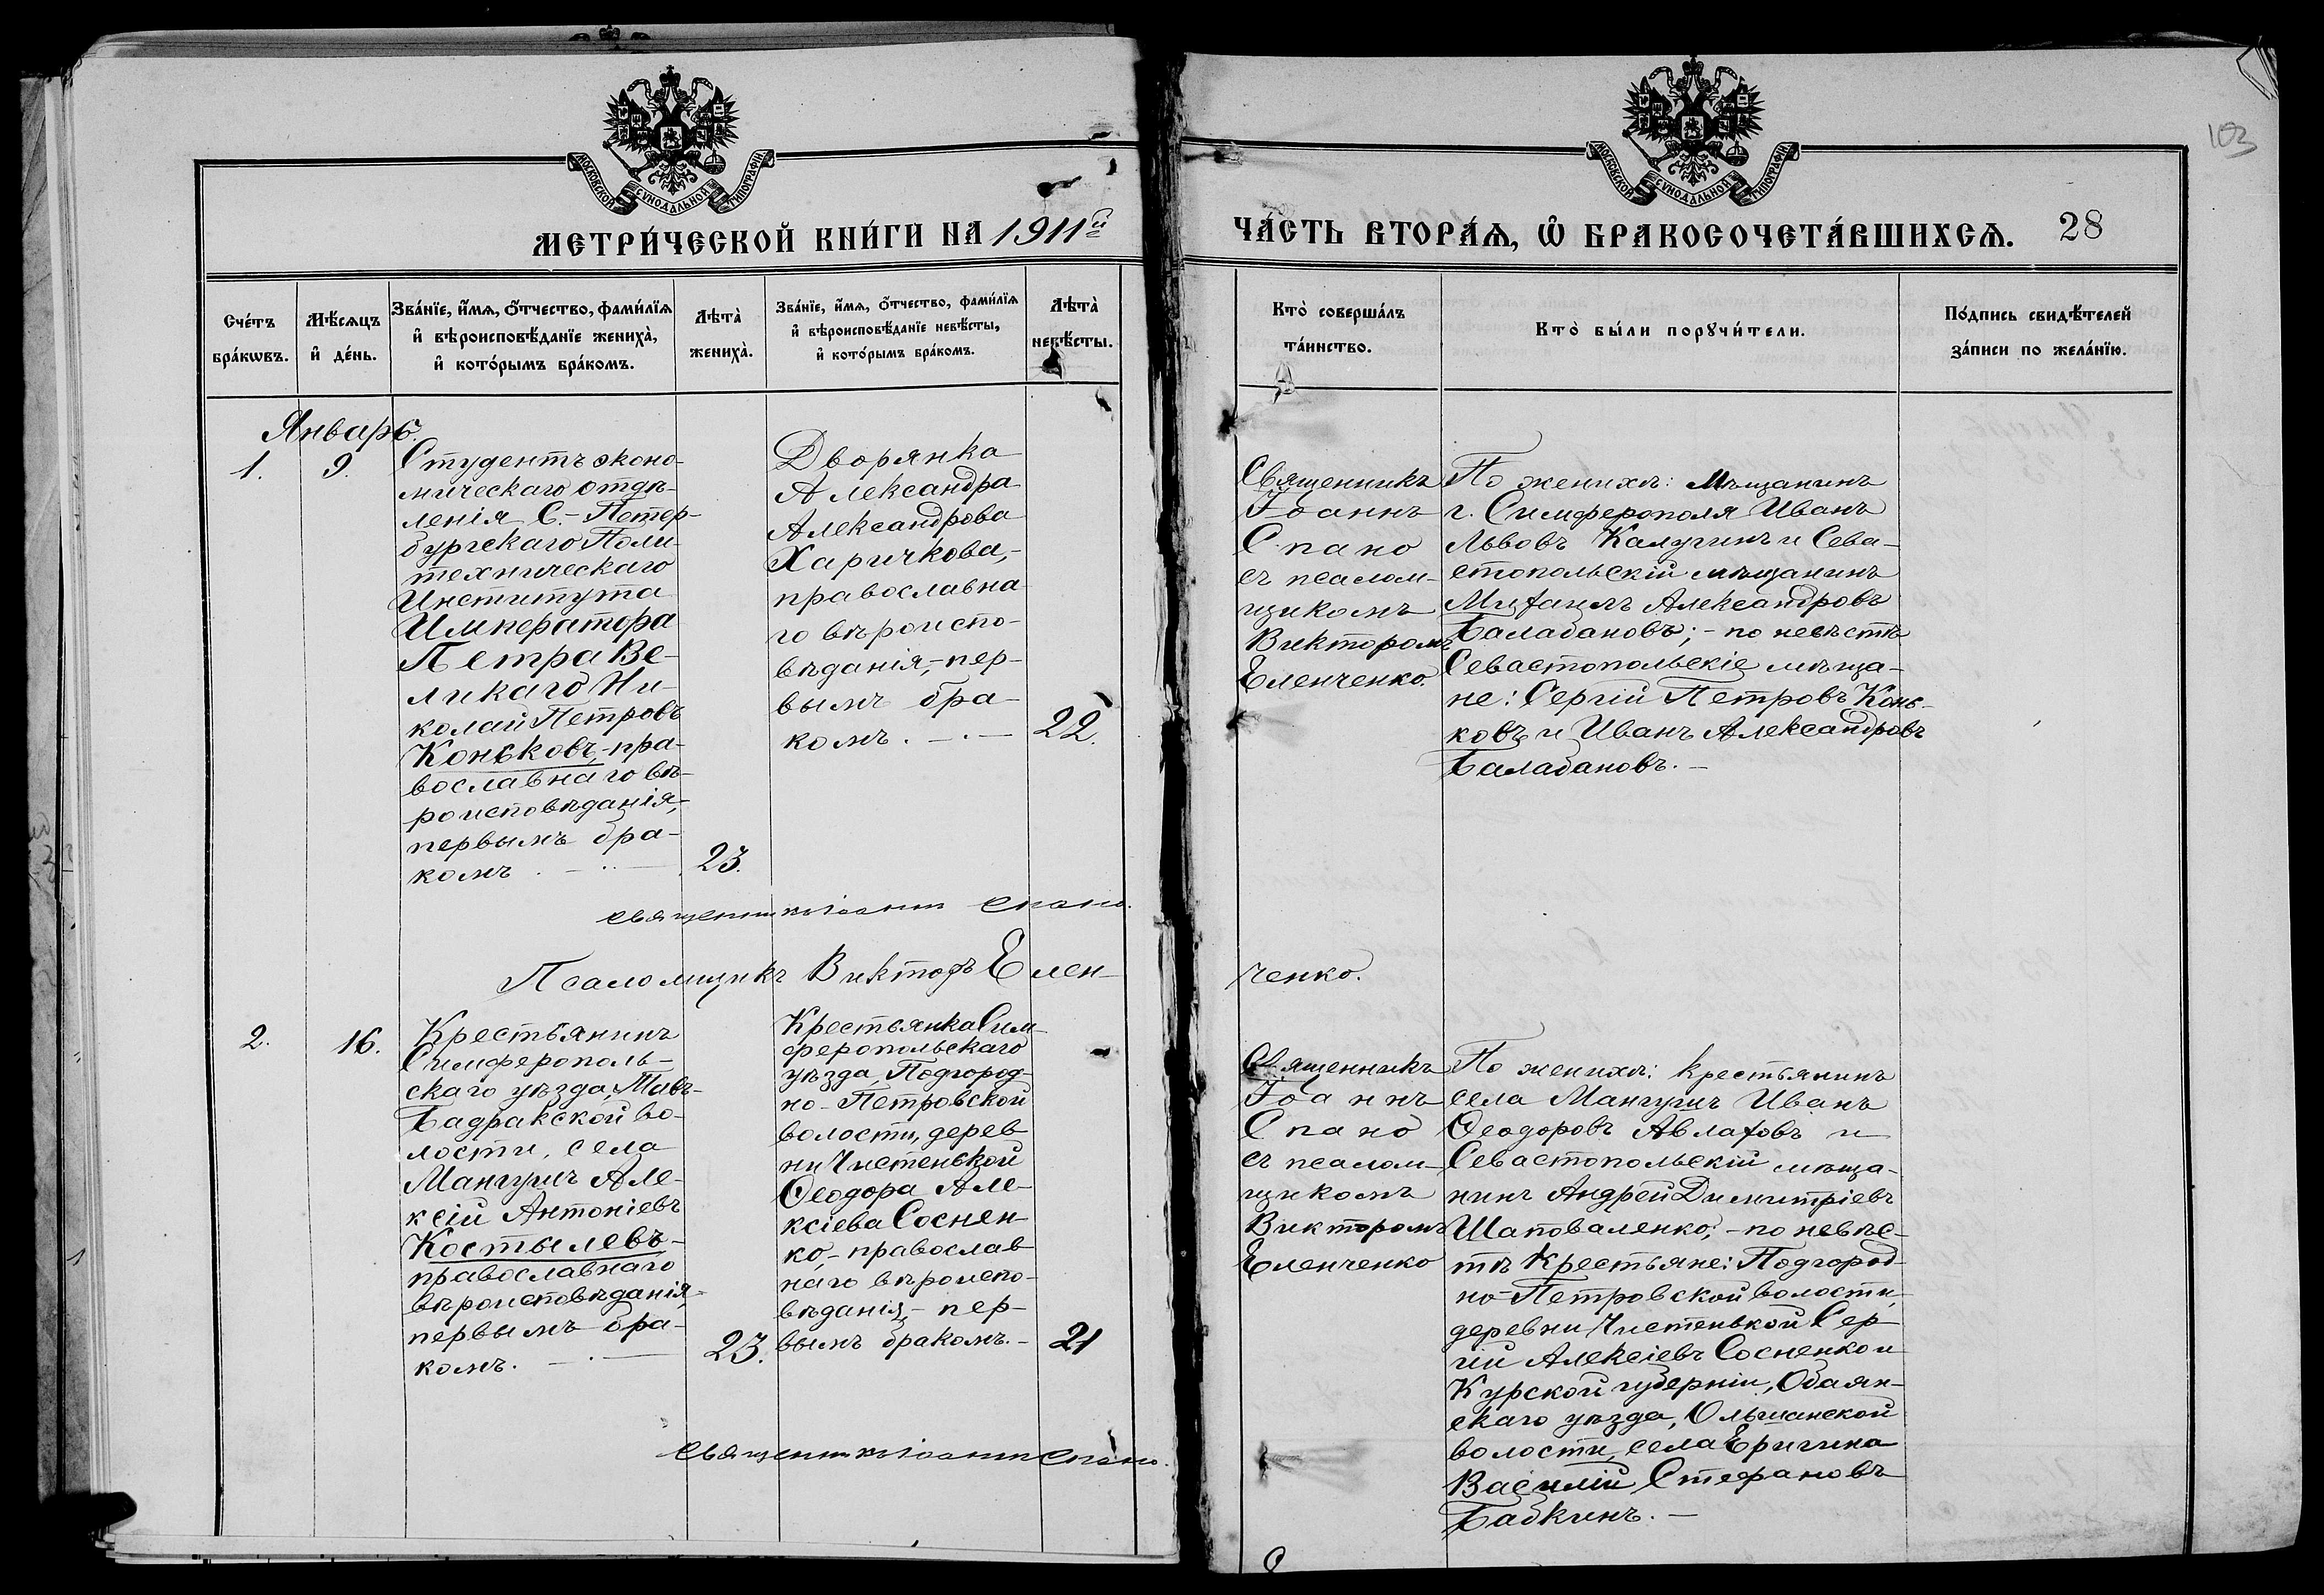 МОСКОВСКОЙ СѴНОДАЛЬНОЙ ТИПОГРАФІИ
МЕТРИ́ЧЕСКОЙ КНИ́ГИ НА 1911й
Сче́тъ
бра́кѡвъ.
Мѣ́сѧцъ
и҆ де́нь.
Зва́нїе, и҆́мѧ, ѻ҆́тчество, фами́лїѧ
и҆ вѣроисповѣ́данїе жениха̀,
и҆ кото́рымъ бра́комъ.
Лѣта̀
жениха̀.
Зва́нїе, и҆́мѧ, ѻ҆́тчество, фами́лїѧ
и҆ вѣроисповѣ́данїе невѣ́сты,
и҆ кото́рымъ бра́комъ.
Лѣта̀
невѣ́сты.
Январь.
1.
9.
Студентъ эконо-
мическаго отдѣ-
ленія С.-Петер-
бургскаго Поли-
техническаго
Института
Императора
Петра Ве-
ликаго Ни-
колай Петровъ
Коньковъ,-пра-
вославнаго вѣ-
роисповѣданія,-
первымъ бра-
комъ. — . —
23.
Дворянка
Александра
Александрова
Харичкова,-
православна
го вѣроиспо-
вѣданія,-пер-
вымъ бра-
комъ. — . —
22.
священникъ Іоаннъ Спано.
Псаломщикъ Викторъ Елен-
2.
16.
Крестьянинъ
Симферополь-
скаго уѣзда, Тавъ-
Бадракской во-
лости, села
Мангушъ Але-
ксій Антоніевъ
Костылевъ-
православнаго
вѣроисповѣданія,-
первымъ бра-
комъ. — . —
23.
Крестьянка Сим-
феропольскаго
уѣзда, Подгород-
но-Петровской
волости, дерев
ни Чистенькой
Ѳеодора Але-
ксіева Соснен-
ко,-православ
наго вѣроиспо-
вѣданія,-пер-
вымъ бракомъ.-
21
священникъ Іоаннъ Спано.
103
МОСКОВСКОЙ СѴНОДАЛЬНОЙ ТИПОГРАФІИ
ЧА́СТЬ ВТОРА́Ѧ, Ѡ҆ БРАКОСОЧЕТА́ВШИХСѦ. 28
Кто̀ соверша́лъ
та́инство.
Кто̀ бы́ли порꙋчи́тели.
По́дпись свидѣ́телей
за́писи по жела́нїю.
Священникъ
Іоаннъ
Спано
съ псалом-
щикомъ
Викторомъ
Еленченко.
По женихѣ: Мѣщанинъ
г. Симферополя Иванъ
Львовъ Калугинъ и Сева-
стопольскій мѣщанинъ
Михаилъ Александровъ
Балабановъ;-по невѣстѣ
Севастопольскіе мѣща-
не: Сергій Петровъ Конь-
ковъ и Иванъ Александровъ
Балабановъ. —
ченко.
Священникъ
Іоаннъ
Спано
съ псалом-
щикомъ
Викторомъ
Еленченко
По женихѣ: крестьянинъ
села Мангушъ Иванъ
Ѳеодоровъ Авлаховъ и
Севастопольскій мѣща-
нинъ Андрей Димитріевъ
Шаповаленко;-по невѣс-
тѣ Крестьяне: Подгород-
но-Петровской волости,
деревни Чистенькой Сер-
гій Алексіевъ Сосненко и
Курской губерніи, Обаян-
скаго уѣзда, Ольшанской
волости, села Еригина
Василій Стефановъ
Бабкинъ. —